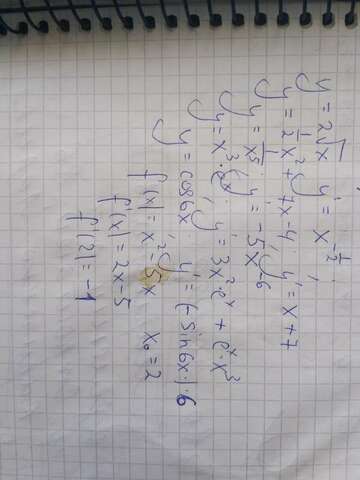 y = 2√x   y' = x^(-1/2)
y = 1/2 x² + 7x - 4   y' = x + 7
y = 1/x⁵   y' = -5x⁻⁶
y = x³ · eˣ   y' = 3x² · eˣ + eˣ · x³
y = cos6x   y' = (-sin6x) · 6
f(x) = x² - 5x   x₀ = 2
f'(x) = 2x - 5
f'(2) = -1